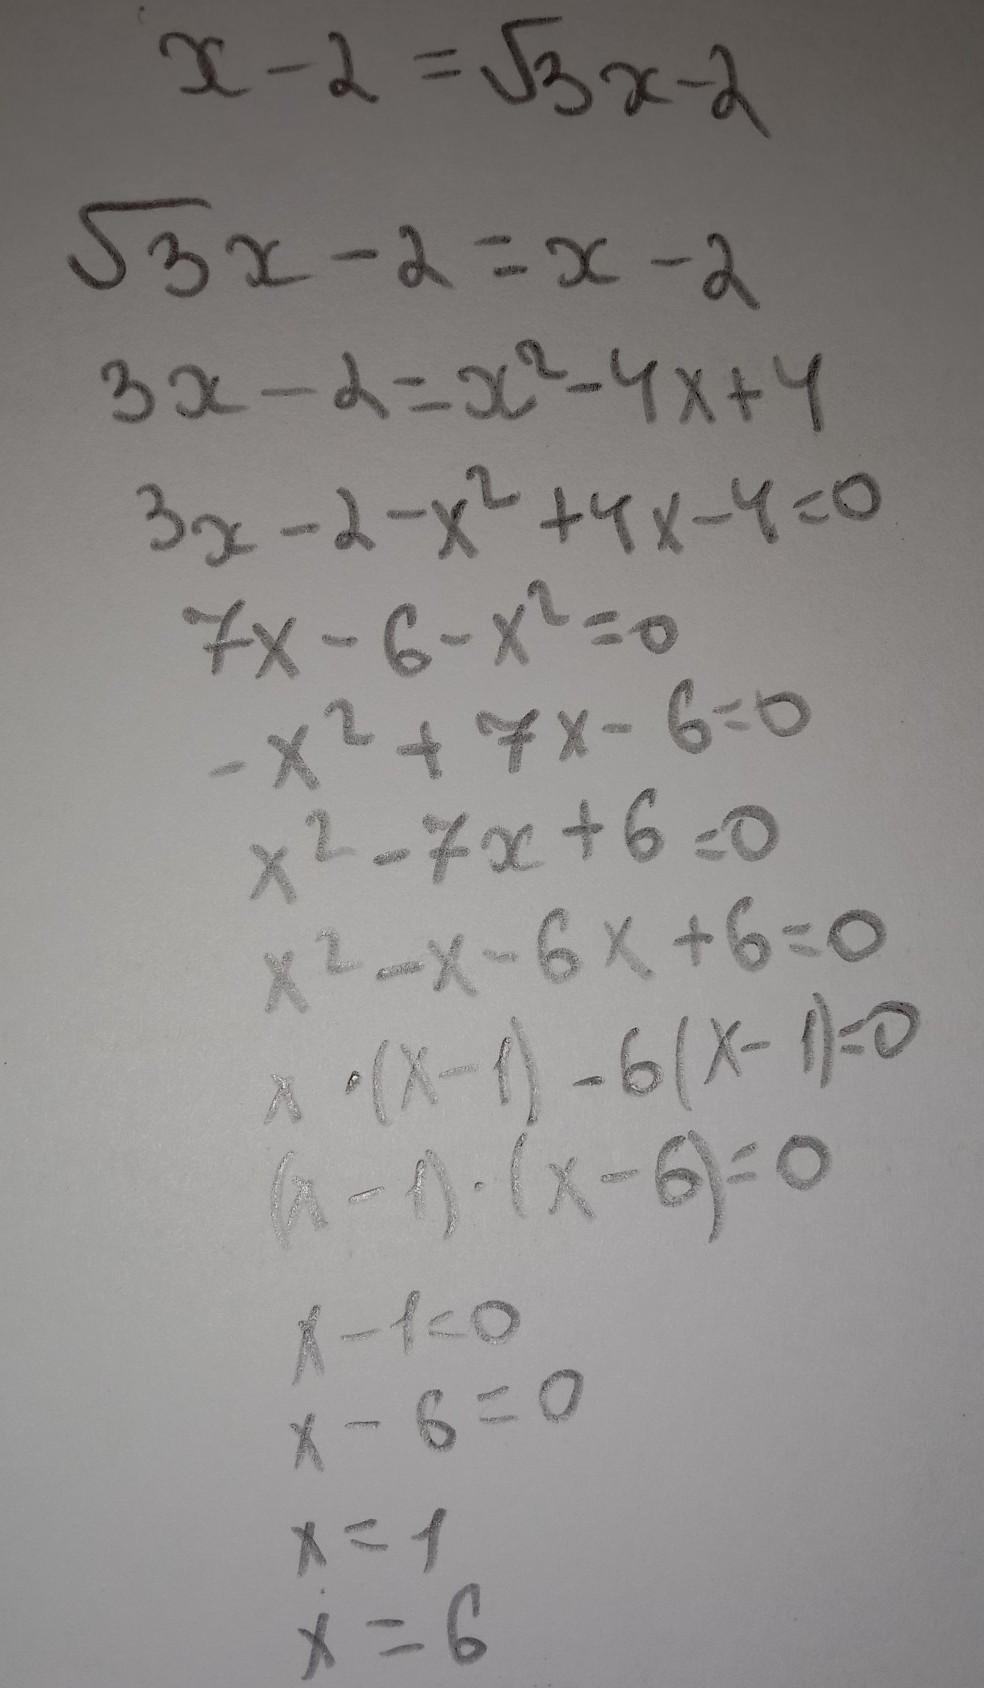 x - 2 = √3x - 2
√3x - 2 = x - 2
3x - 2 = x² - 4x + 4
3x - 2 - x² + 4x - 4 = 0
7x - 6 - x² = 0
-x² + 7x - 6 = 0
x² - 7x + 6 = 0
x² - x - 6x + 6 = 0
x · (x - 1) - 6(x - 1) = 0
(x - 1) · (x - 6) = 0
x - 1 = 0
x - 6 = 0
x = 1
x = 6